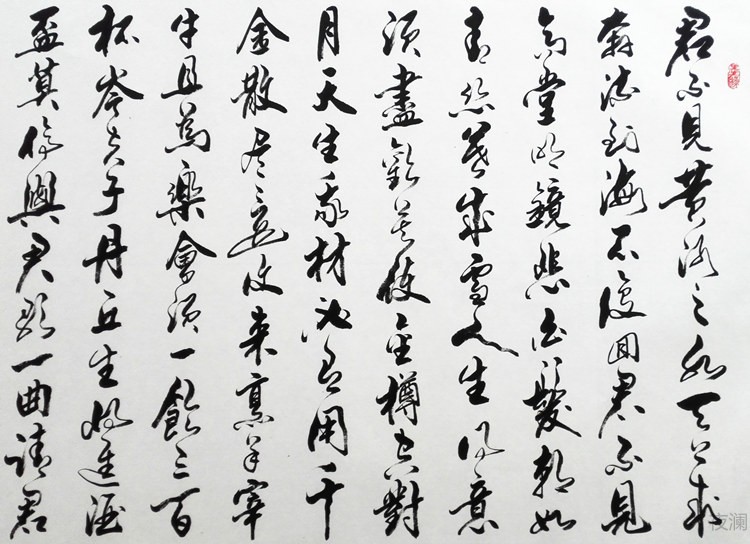 君不見黃河之水天上來
奔流到海不復回君不見
高堂明鏡悲白髮朝如
青絲暮成雪人生得意
須盡歡莫使金樽空對
月天生我材必有用千
金散尽還復來烹羊宰
牛且為樂會須一飲三百
杯岑夫子丹丘生將進酒
盃莫停與君歌一曲請君
夜澜